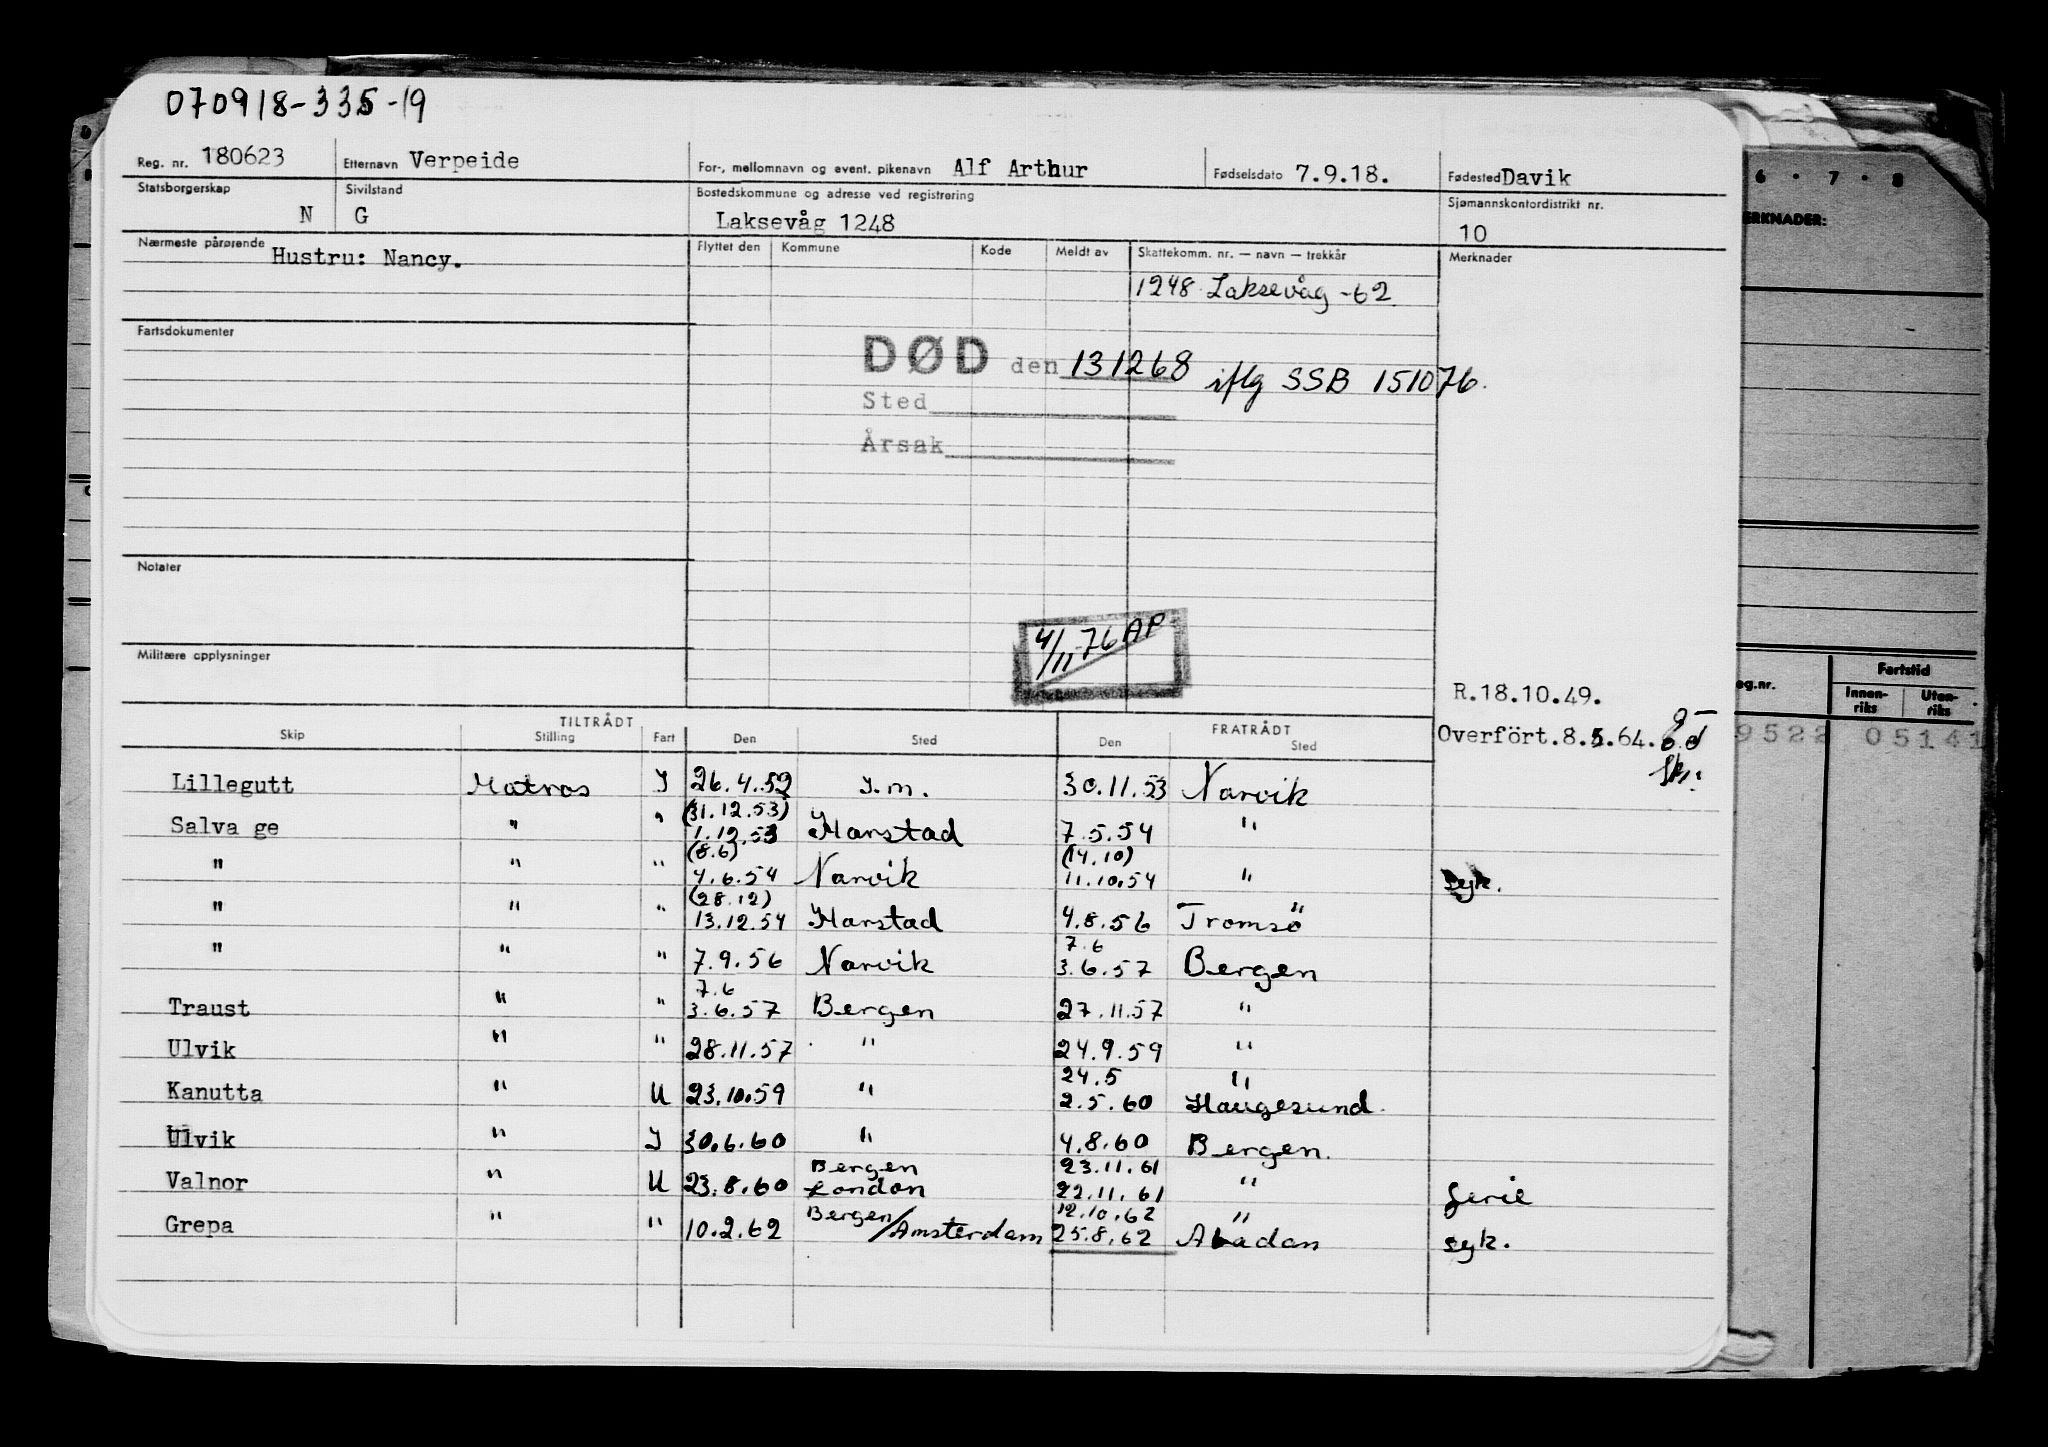 070918-335-19
Reg. nr. 180623 Etternavn Verpeide For-, mellomnavn og event. pikenavn Alf Arthur Fødselsdato 7.9.18. Fødested Davik
Statsborgerskap N Sivilstand G Bostedskommune og adresse ved registrering Laksevåg 1248 Sjømannskontordistrikt nr. 10
Nærmeste pårørende Hustru: Nancy. Flyttet den Kommune Kode Meldt av Skattekomm. nr. — navn — trekkår Merknader
1248 Laksevåg -62
Fartsdokumenter
DØD den 131268 iflg SSB 151076.
Sted
Årsak
Notater
4/11 76 AP
Militære opplysninger
R.18.10.49.
Overfört.8.5.64.
TILTRÅDT FRATRÅDT
Skip Stilling Fart Den Sted Den Sted
Lillegutt Matros I 26.4.52 I.m. 30.11.53 Narvik
(31.12.53)
Salva ge " " 1.12.53 Harstad 7.5.54 "
(8.6) (14.10)
" " " 4.6.54 Narvik 11.10.54 " syk.
(28.12)
" " " 13.12.54 Harstad 4.8.56 Tromsö
7.6
" " " 7.9.56 Narvik 3.6.57 Bergen
7.6
Traust " " 3.6.57 Bergen 27.11.57 "
Ulvik " " 28.11.57 " 24.9.59 "
24.5 "
Kanutta " U 23.10.59 " 2.5.60 Haugesund.
Ulvik " I 30.6.60 " 4.8.60 Bergen.
Bergen 23.11.61
Valnor " U 23.8.60 London 22.11.61 " ferie
Bergen/ 12.10.62 "
Grepa " " 10.2.62 Amsterdam 25.8.62 Abadan syk.
6 · 7 · 8
ERKNADER:
eg.nr. Fartstid
Innen-riks Uten-riks
9522 05141